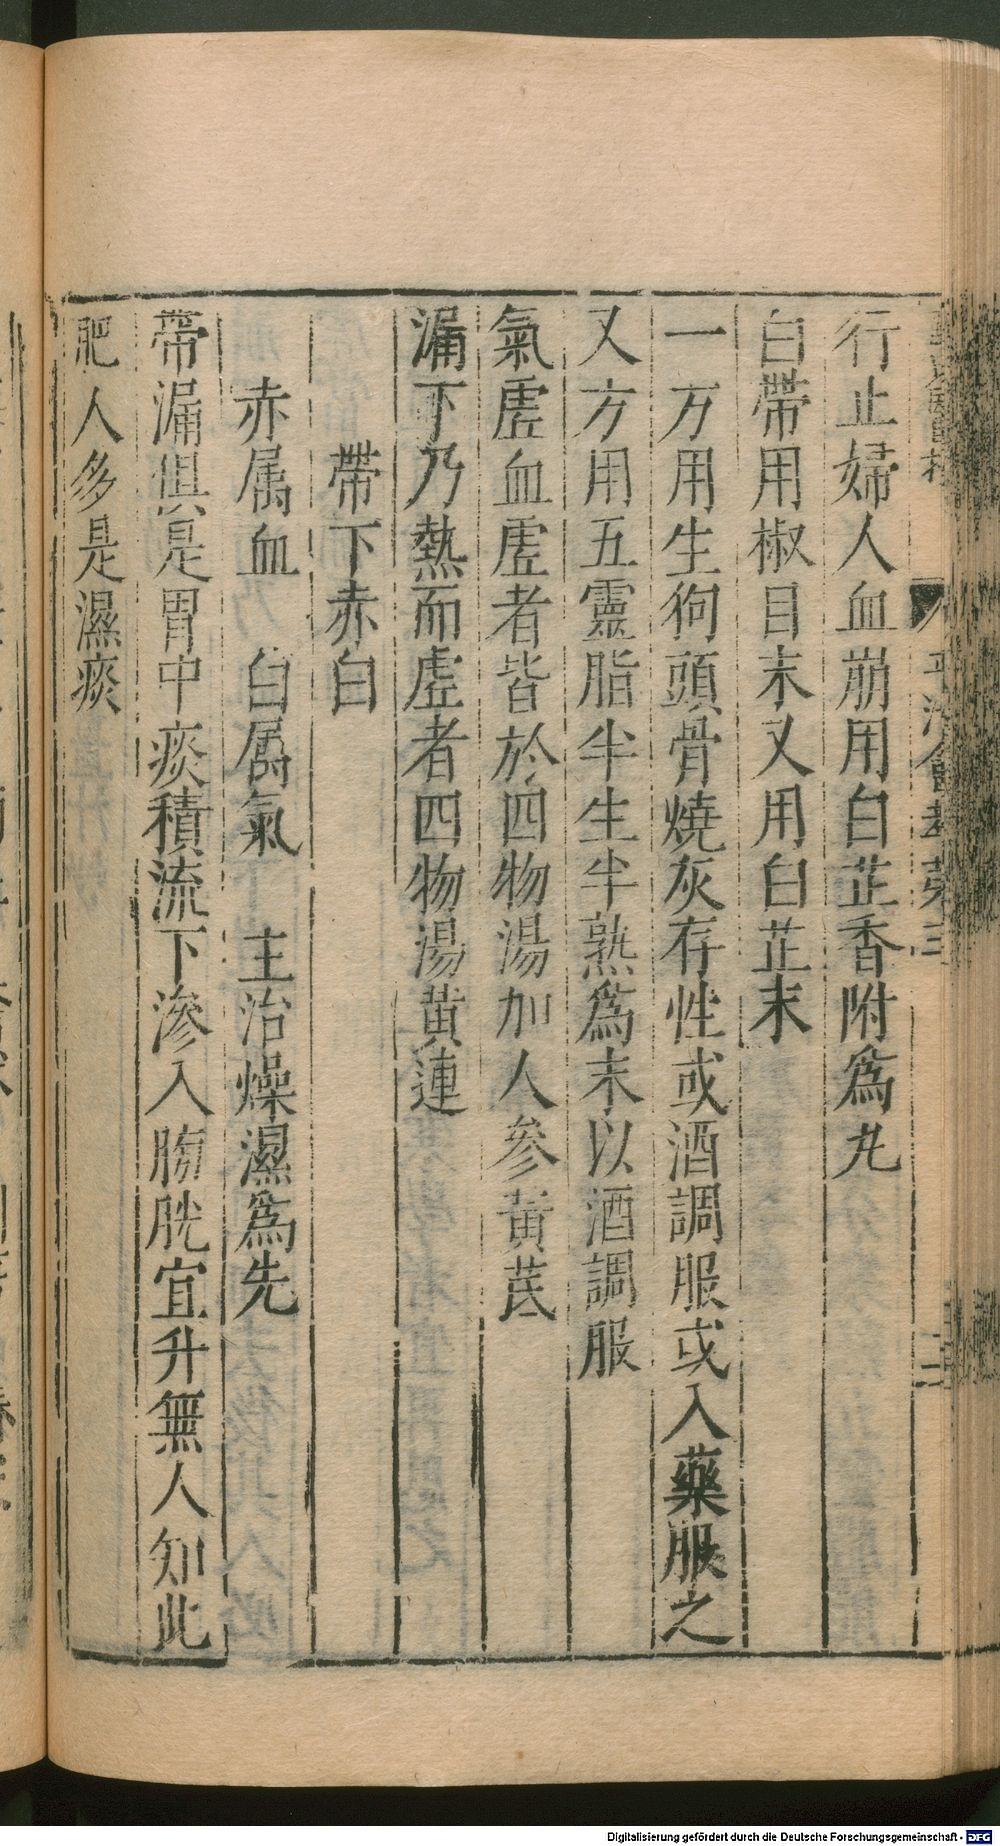 行止婦人血崩用白芷香附爲丸
白帶用椒目末又用白芷末
一方用生狗頭骨燒灰存性或酒調服或入藥服之
又方用五靈脂半生半熟爲末以酒調服
氣虛血虛者皆於四物湯加人參黃芪
漏下乃熱而虛者四物湯黃連
帶下赤白
赤属血 白属氣 主治燥濕爲先
帶漏俱是胃中痰積流下滲入膀胱宜升無人知此
肥人多是濕痰
Digitalisierung gefördert durch die Deutsche Forschungsgemeinschaft - DFG